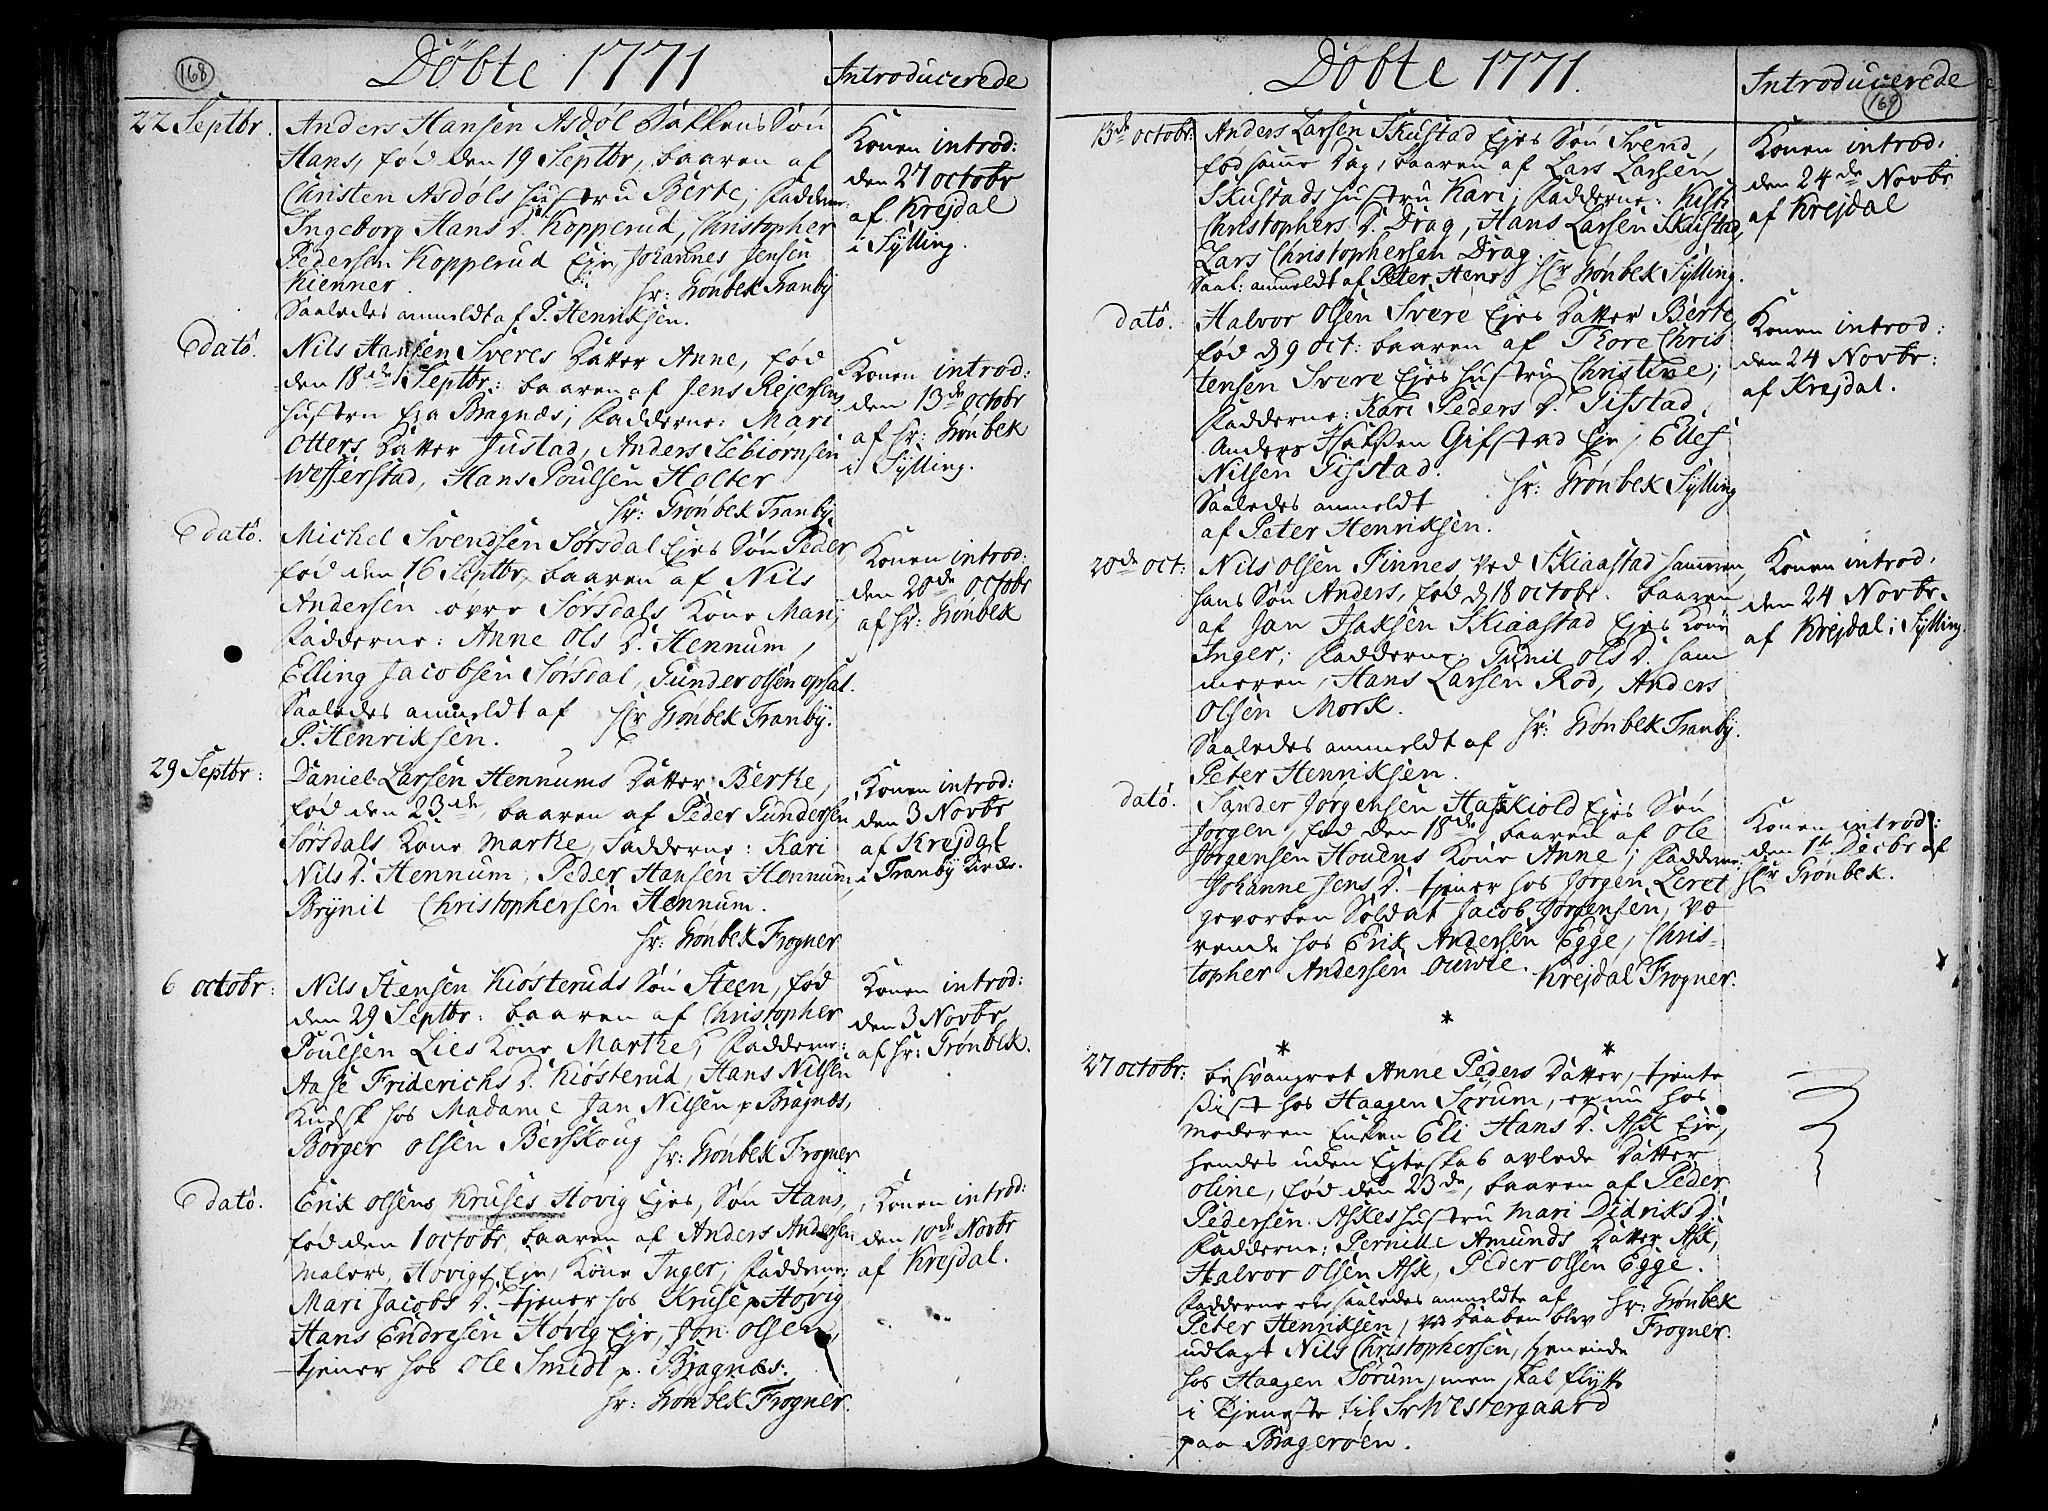 168
Döbte 1771
Introducerede
22 Septbr.
Anders Hansen Asdøl Bakkens Søn
Hans, fød den 19 Septbr, baaren af
Christen Asdøls Hustru Berte; Faddere:
Ingeborg Hans D. Kopperud, Christopher
Pedersen Kopperud Eje, Johannes Jensen
Kienner. Hr: Grönbek Tranby
Saaledes anmeldt af P. Henriksen.
Konen introd:
den 27 octobr
af Krejdal
i Sylling.
dato.
Nils Hansen Sveres Datter Anne, fød
den 18de Septbr: baaren af Jens Rejersens
Hustru Eja Bragnæs; Fadderne: Mari
Otters Datter Justad, Anders Sebiörnsen
Wefferstad, Hans Poulsen Holter
Hr: Grönbek Tranby
Konen introd:
den 13de octobr
af Hr: Grönbek
i Sylling.
dato.
Michel Svendsen Sørsdal Ejes Søn Peder,
fød den 16 Septbr, baaren af Nils
Andersen övre Sørsdals Kone Mari,
Fadderne: Anne Ols D. Hennum,
Elling Jacobsen Sørsdal, Gunder olsen opsal.
Saaledes anmeldt af Hr Grönbek Tranby.
P. Henriksen.
Konen introd:
den 20de octobr
af Hr: Grönbek
29 Septbr:
Daniel Larsen Hennums Datter Berthe,
fød den 23de, baaren af Peder Gundersen
Sørsdals Kone Marthe, Fadderne: Kari
Nils D. Hennum, Peder Hansen Hennum,
Brynil Christophersen Hennum.
Hr: Grönbek Frogner
Konen introd:
den 3 Novbr
af Krejdal
i Tranby Kirke.
6 octobr:
Nils Stensen Kiösteruds Søn Steen, fød
den 29 Septbr: baaren af Christopher
Poulsen Lies Kone Marthe, Fadderne:
Aase Friderichs D. Kiösterud, Hans Nilsen
Kudsk hos Madame Jan Nilsen p Bragnæs,
Börger olsen Berskoug Hr: Grönbek Frogner
Konen introd:
den 3 Novbr
af Hr: Grönbek.
dato.
Erik olsens Kruses Høvig Ejes, Søn Hans,
fød den 1 octobr, baaren af Anders Andersen
Malers, Høvigs Eje, Kone Inger, Fadderne:
Mari Jacobs D. tjener hos Kruse p Høvig
Hans Endresen Høvig Eje, Jon olsen,
tjener hos Ole Smidt p. Bragnæs.
Hr: Grönbek Frogner.
Konen introd:
den 10de Novbr
af Krejdal.
Döbte 1771.
Introducerede
169
13de octobr:
Anders Larsen Skustad Ejes Søn Svend,
fød samme Dag, baaren af Lars Larsen
Skustads Hustru Kari; Fadderne: Kisti
Christophers D. Drag, Hans Larsen Skustad,
Lars Christophersen Drag.
Saal: anmeldt af Peter Henr Hr Grönbek Sylling.
Konen introd:
den 24de Novbr
af Krejdal
dato.
Halvor olsen Svere Ejes Datter Berte
fød d 9 oct: baaren af Thore Chris
tensen Svere Ejes Hustru Christine;
Fadderne: Kari Peders D. Gifstad,
Anders Gifstad Eje, Ellef
Nilsen Gifstad. Hr: Grönbek Sylling
Saaledes anmeldt
af Peter Henriksen.
Konen introd:
den 24 Novbr:
af Krejdal.
20de oct:
Nils olsen Finnes ved Skiaastad Hammeren,
hans Søn Anders, fød d 18 octobr. baaren
af Jan Isaksen Skiaastad Ejes Kone
Inger; Fadderne: Gunil Ols D. Ham
meren, Hans Larsen Rød, Anders
olsen Mork. Hr: Grönbek Tranby.
Saaledes anmeldt af
Peter Henriksen.
Konen introd:
den 24 Novbr.
af Krejdal i Sylling.
dato.
Sander Jørgensen Haskiold Ejes Søn
Jorgen, fød den 18de, baaren af ole
Jørgensen Houens Kone Anne; Fadderne:
Johanne Jens D. tjener hos Jørgen Leret
gevorben Soldat Jacob Jørgensen, væ
rende hos Erik Andersen Egge, Chris-
topher Andersen ouwie. Krejdal Frogner.
Konen introd:
den 1te Decbr af
Hr Grönbek.
* * *
27 octobr:
besvangret Anne Peders Datter, tjente
sist hos Haagen Sørum, er nu hos
Moderen Enken Eli Hans D. Ask Eje,
hendes uden Egteskab avlede Datter
oline, fød den 23de, baaren af Peder
Pedersen Askes Hustru Mari Didriks D.
Fadderne: Pernille Amunds Datter Ask,
Halvor olsen Ask, Peder olsen Egge.
Fadderne ere saaledes anmeldte af Hr: Grönbek
Peter Henriksen, ved Daaben blev Frogner.
udlagt Nils Christophersen, tjenende
hos Haagen Sørum, men skal flytte
i Tjeneste til Sr Westergaard
paa Bragerøen.